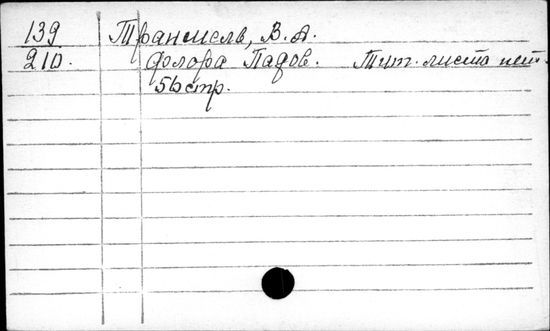 139 Траншель, В. А.
210. Флора Падов. Тит. листа нет.
56 стр.